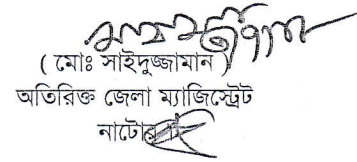 ( মোঃ সাইদুজ্জামান )
অতিরিক্ত জেলা ম্যাজিস্ট্রেট
নাটোর